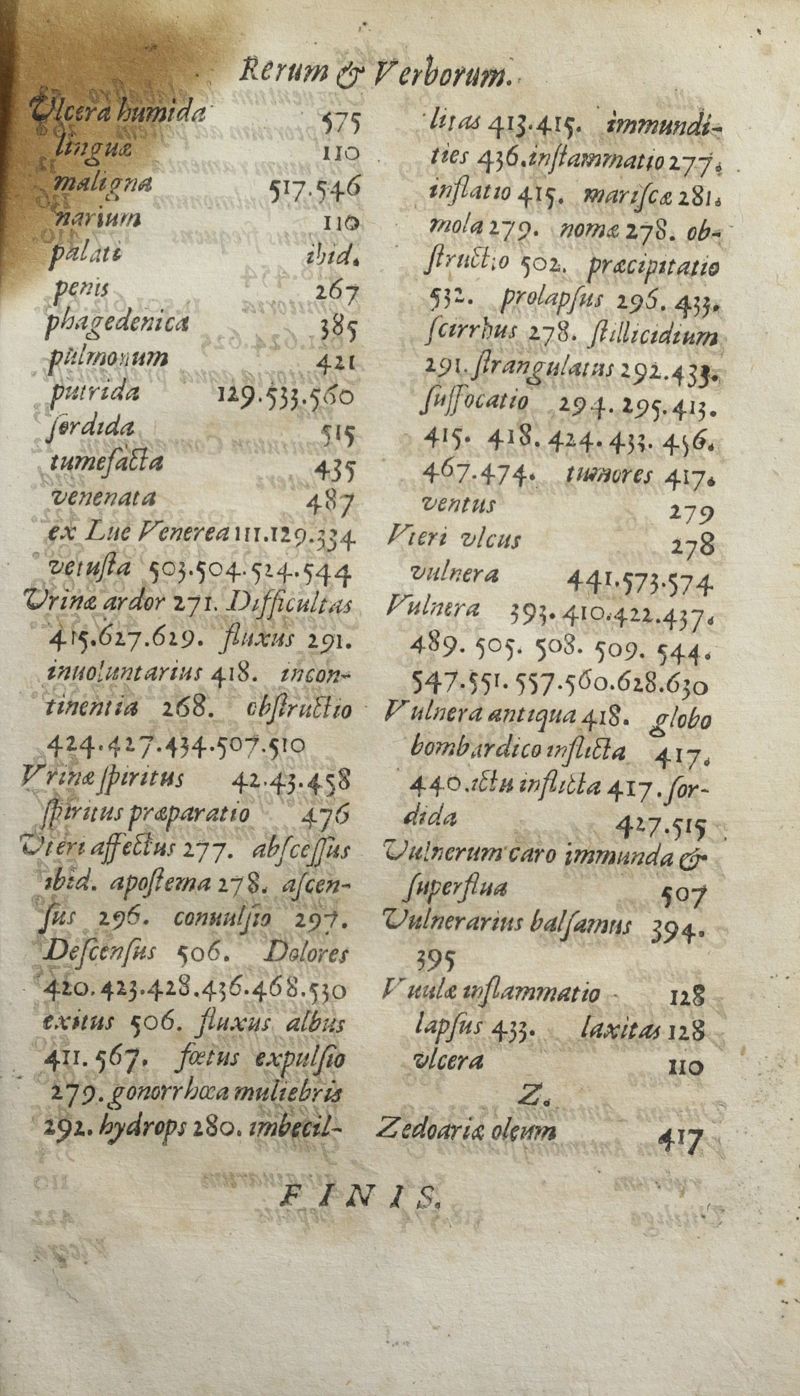 Rerum & Verborum.
Ulcera humida 575
linguæ 110
maligna 517.546
narium 110
palati ibid.
penis 267
phagedenica 385
pulmonum 421
putrida 129.533.560
ſordida 515
tumefacta 435
venenata 487
ex Lue Venerea 111.129.334
vetuſta 503.504.524.544
Vrinæ ardor 271. Difficultas
415.627.629. fluxus 291.
inuoluntarius 418. incon-
tinentia 268. obſtructio
424.427.434.507.510
Vrinæ ſpiritus 42.43.458
ſpiritus præparatio 476
Vteri affectus 277. abſceſſus
ibid. apoſtema 278. aſcen-
ſus 296. conuulſio 297.
Deſcenſus 506. Dolores
420.423.428.436.468.530
exitus 506. fluxus albus
411.567. fœtus expulſio
279. gonorrhœa muliebris
292. hydrops 280. imbecil-
litas 413.415. immundi-
ties 436. inflammatio 277.
inflatio 415. mariſcæ 281.
mola 279. nomæ 278. ob-
ſtructio 502. præcipitatio
532. prolapſus 296. 433.
ſcirrhus 278. ſtillicidium
291. ſtrangulatus 292.433.
ſuffocatio 294. 295. 413.
415. 418. 424. 433. 456.
467.474. tumores 417.
ventus 279
Vteri vlcus 278
vulnera 441.573.574
Vulnera 393. 410.422.437.
489. 505. 508. 509. 544.
547.551.557.560.628.630
Vulnera antiqua 418. globo
bombardico inflicta 417.
440. ictu inflicta 417. ſor-
dida 427.515
Vulnerum caro immunda &
ſuperflua 507
Vulnerarius balſamus 394.
395
Vuulæ inflammatio 128
lapſus 433. laxitas 128
vlcera 110
Z.
Zedoariæ oleum 417
FINIS.